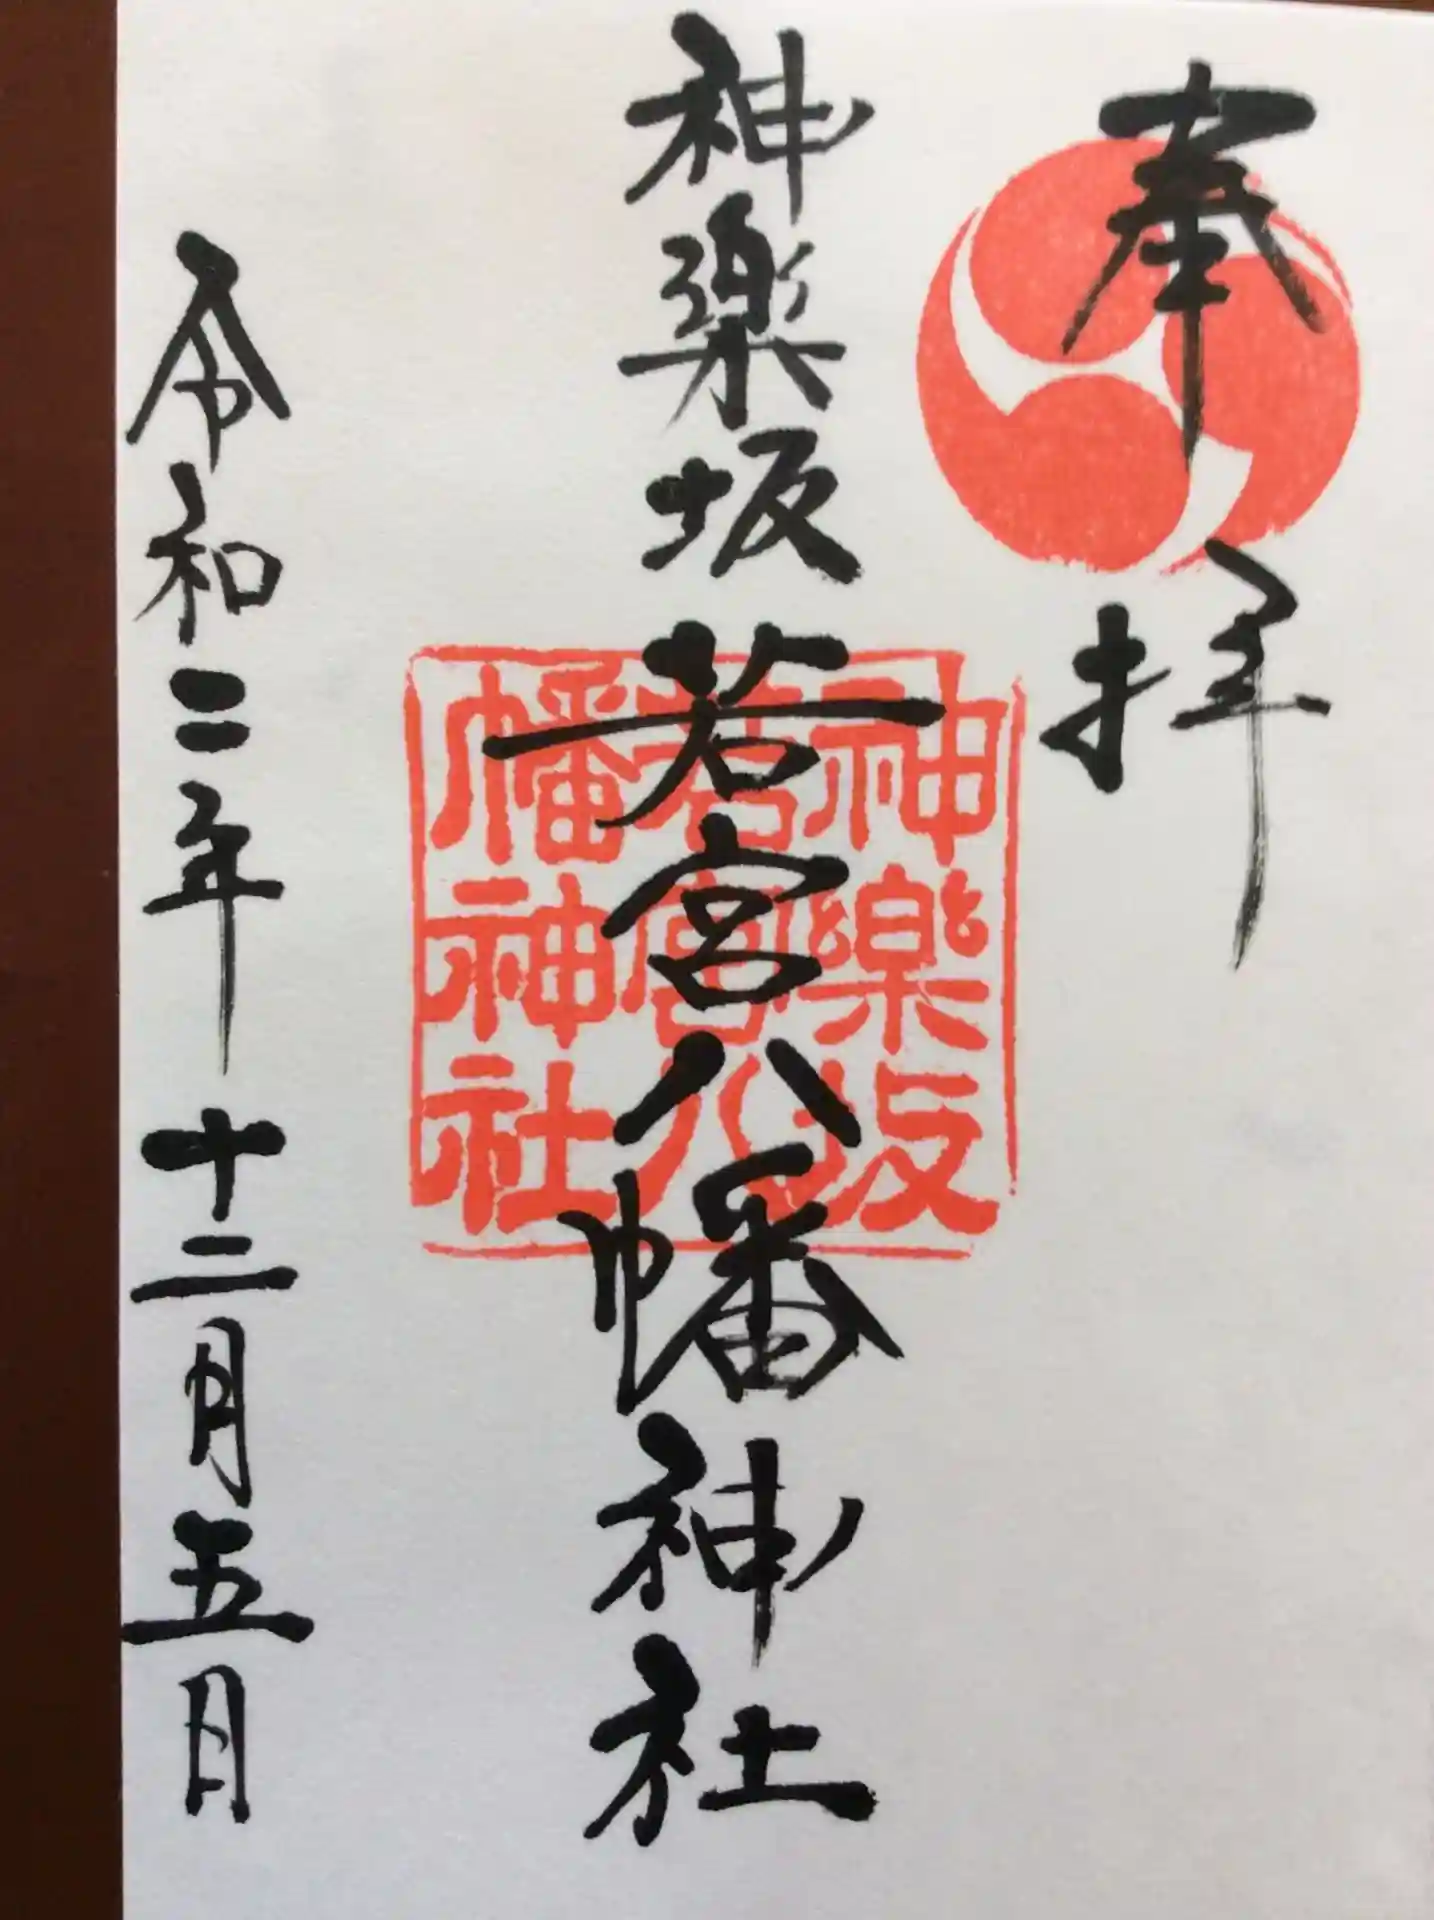 奉拝
神楽坂若宮八幡神社
神樂坂
若宮八
幡神社
令和二年十二月五日